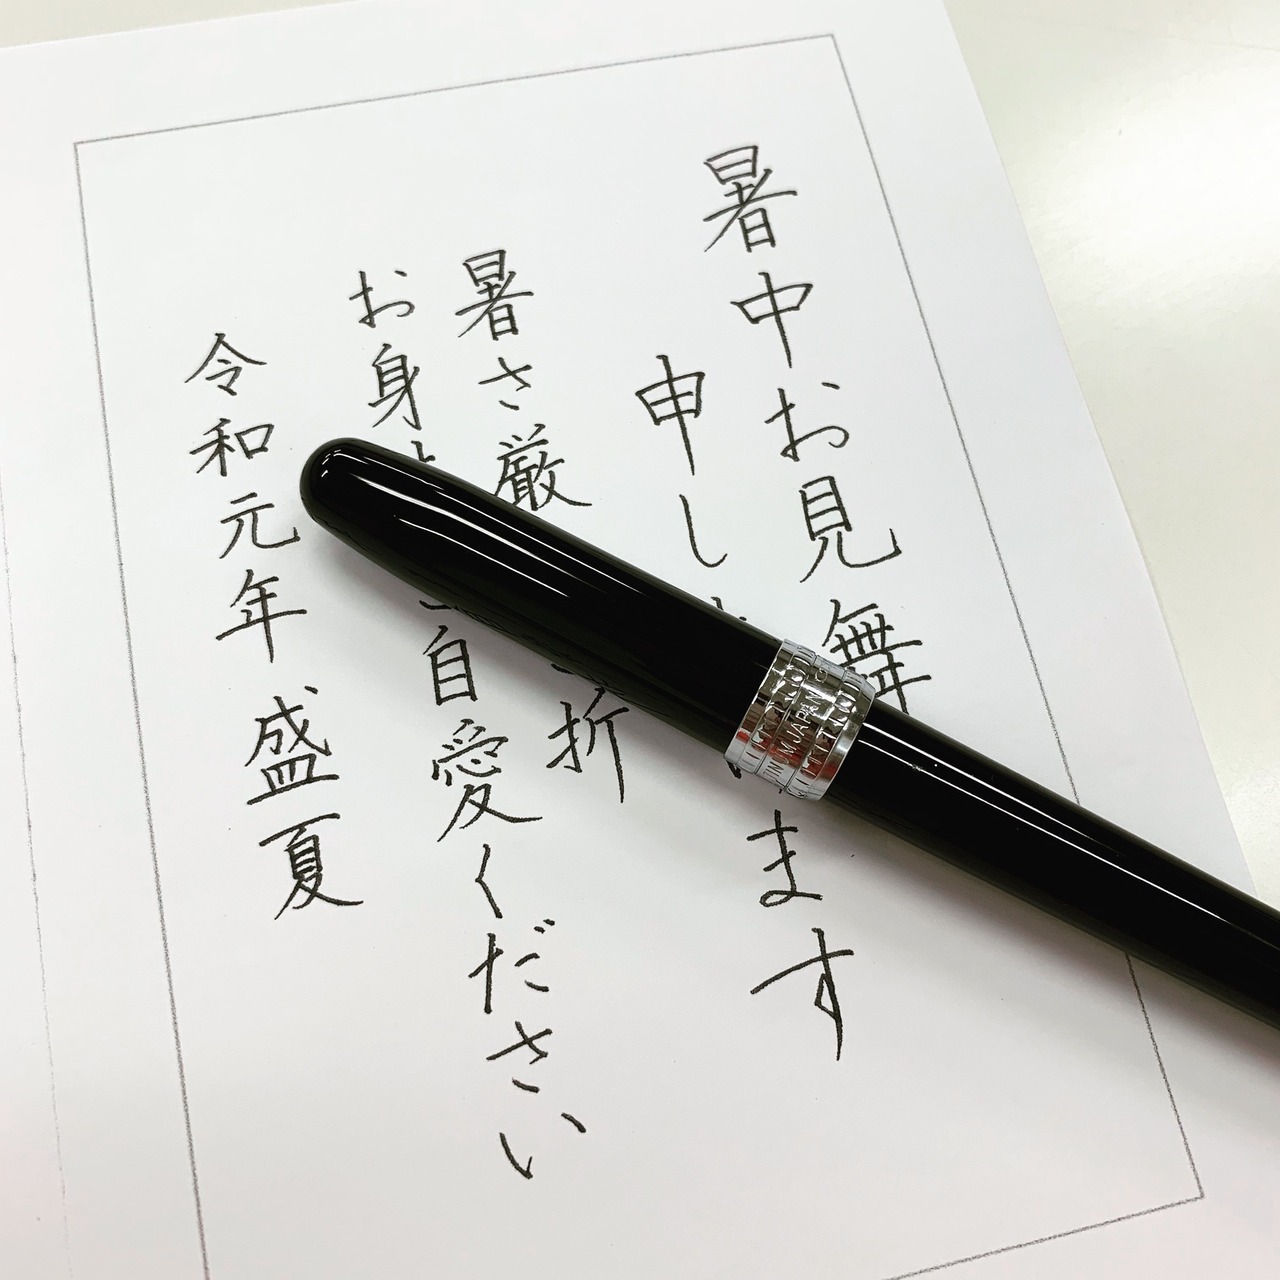 暑中お見舞
申し ます
暑さ厳 折
お身 自愛ください
令和元年 盛夏
JAPAN